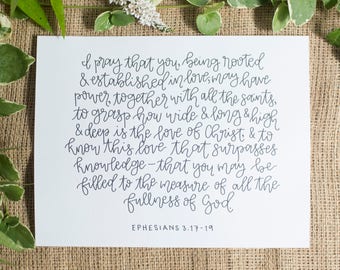 I pray that you, being rooted
& established in love, may have
power, together with all the saints,
to grasp how wide & long & high
& deep is the love of Christ, & to
know this love that surpasses
knowledge - that you may be
filled to the measure of all the
fullness of God
EPHESIANS 3.17-19